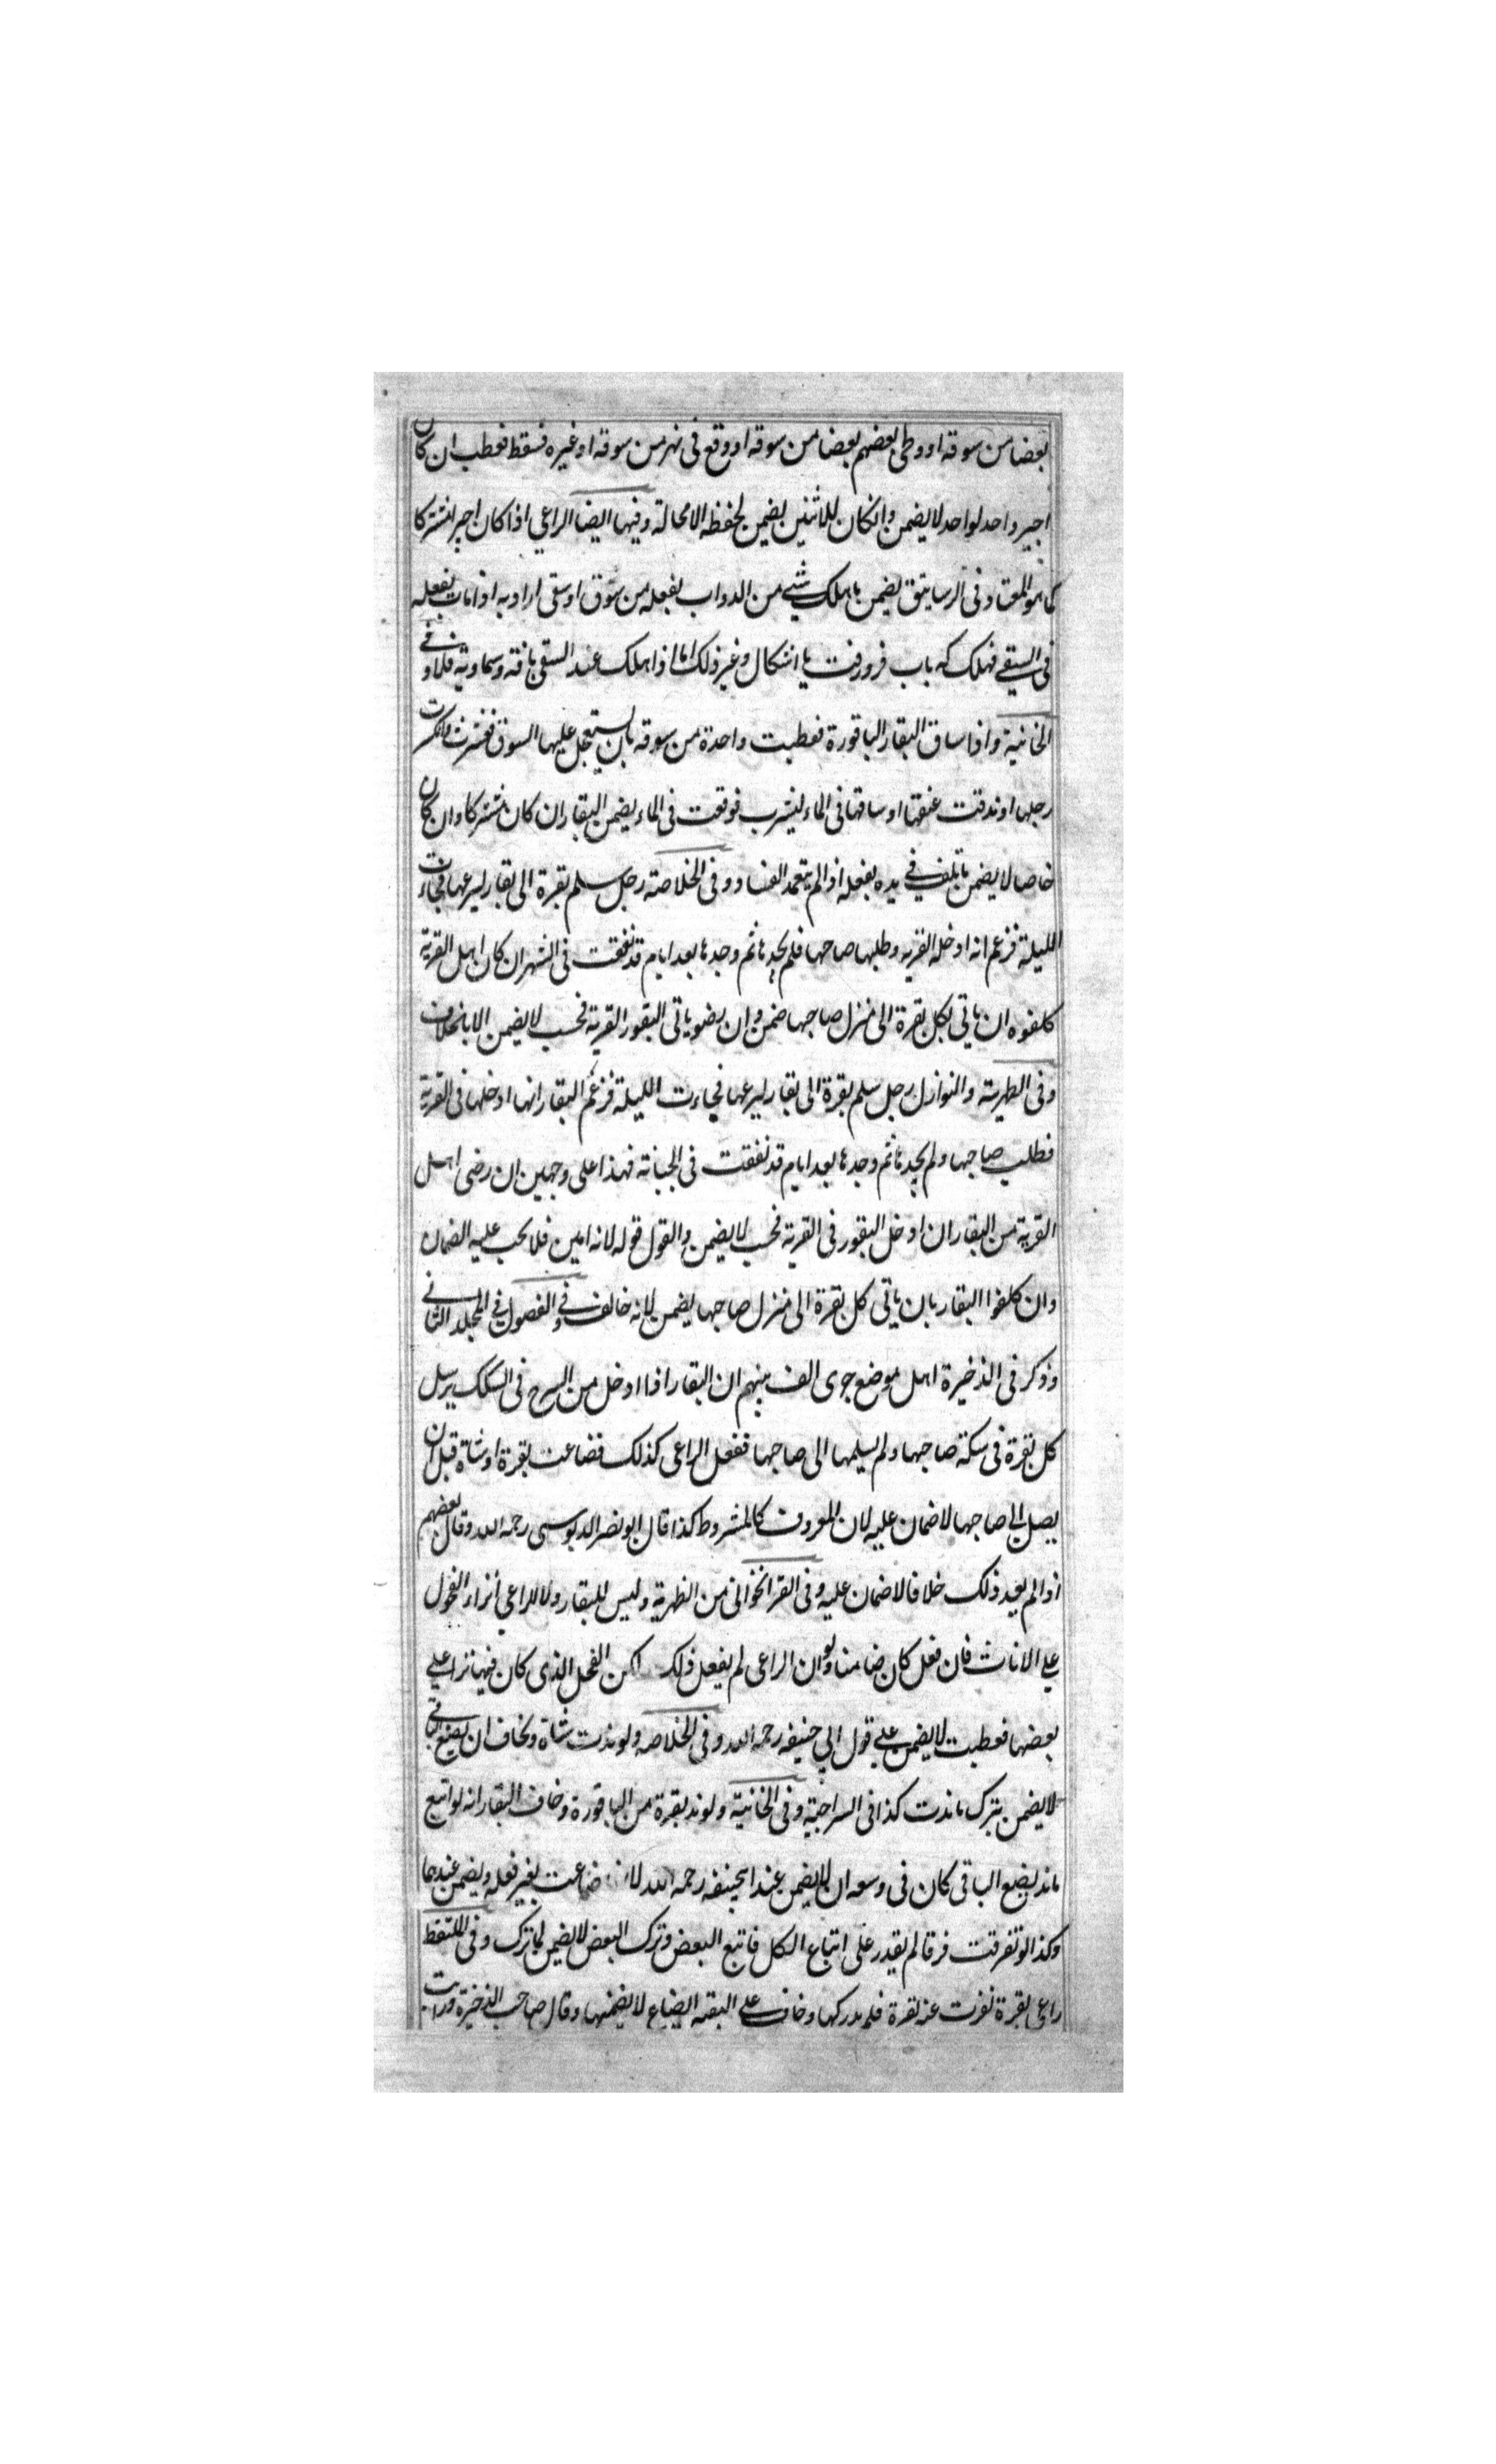 بعضا من سوقه او وطى بعضهم بعضا من سوقه او وقع فى نهر من سوقه او غيره فسقط فعطب ان كان
اجير واحد لواحد لا يضمن وانكان للاثنين يضمن لحفظه لا محالة وفيها ايضا الراعي اذا كان اجيرا مشتركا
كما هو المعتاد فى الرساتيق يضمن ما هلك شيء من الدواب بفعله من سوق او سقى اراد به اذا مات بفعله
فى السقي فهلك كه باب فرورفت يا اشكال وغير ذلك اما اذا هلك عند السقى بافة سماوية فلا وفي
الخانية واذا ساق البقار الباقورة فعطبت واحدة من سوقه بان يستعجل عليها السوق فعثرت وانكسرت
رجلها او ندقت عنقها او ساقها فى الماء ليشرب فوقعت فى الماء يضمن البقار ان كان مشتركا وان كان
خاصا لا يضمن ما تلف في يده بفعله اذا لم يتعمد الفساد وفى الخلاصة رجل سلم بقرة الى بقار ليرعيها فجاءت
الليلة فزعم انه ادخله القريه وطلبها صاحبها فلم يجدها ثم وجدها بعد ايام قد نفقت فى النهر ان كان اهل القرية
كلفوه ان ياتي بكل بقرة الى منزل صاحبها ضمن وان رضو ياتى البقور القرية فحسب لا يضمن الا بالخلاف
وفى الظهيرية والنوازل رجل سلم بقرة الى بقار ليرعيها فجاءت الليلة فزعم البقار انها ادخلها فى القرية
فطلب صاحبها ولم يجدها ثم وجدها بعد ايام قد نفقت فى الجبانة فهذا على وجهين ان رضى اهل
القرية من البقار ان ادخل البقور فى القرية فحسب لا يضمن والقول قوله لانه امين فلا يجب عليه الضمان
وان كلفوا البقار بان ياتى كل بقرة الى منزل صاحبها يضمن لانه خالف وفي الفصول في المجلد الثاني
وذكر فى الذخيرة اهل موضع جرى الف بينهم ان البقار اذا ادخل من السرح فى السكك يرسل
كل بقرة فى سكة صاحبها ولم يسلمها الى صاحبها ففعل الراعى كذلك فضاعت بقرة او شاة قبل ان
يصل الى صاحبها لا ضمان عليه لان المعروف كالمشروط كذا قال ابو نصر الدبوسى رحمه الله وقال بعضهم
اذا لم يعد ذلك خلافا لا ضمان عليه وفى القراخوانى من الظهرية وليس للبقار ولا للراعي انزاء الفحول
علي الاناث فان فعل كان ضامنا ولو ان الراعى لم يفعل ذلك لكن الفحل الذى كان فيها نزا علي
بعضها فعطبت لا يضمن علي قول ابي حنيفه رحمه الله وفى الخلاصه ولو ندت شاة وخاف ان يضيع الباقي
لا يضمن بترك ما ندت كذا فى السراجية وفى الخانية ولو ند بقرة من الباقورة وخاف البقار انه لو اتبع
ما ند يضيع الباقى كان فى وسعه ان لا يضمن عند ابيحنيفه رحمه الله لان ضاعت بغير فعله ويضمن عندهما
وكذا لو تفرقت فرقا لم يقدر على اتباع الكل فاتبع البعض وترك البعض لا يضمن لما ترك وفى الملتقط
راعى بقرة نفرت عنه بقرة فلم يدركها وخاف علي البقية الضياع لا يضمنها وقال صاحب الذخيرة ورايت